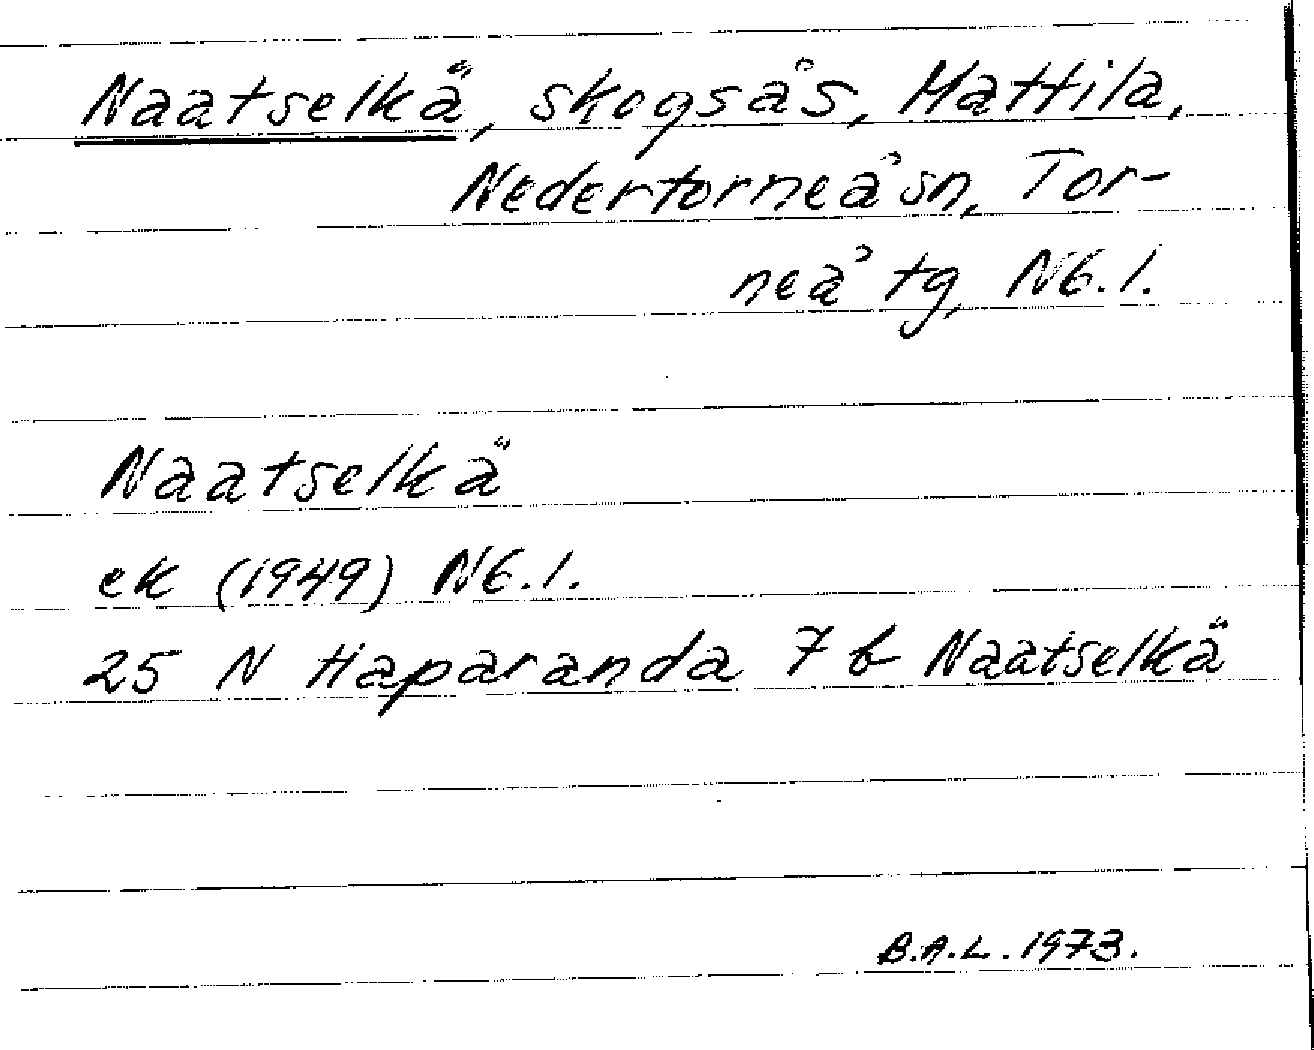 Naatselkä, skogsås, Mattila,
Nedertorneå sn, Tor-
neå tg, Nb. l.
Naatselkä
ek (1949) Nb. l.
25 N Haparanda 7 b Naatselkä
B.A.L. 1973.